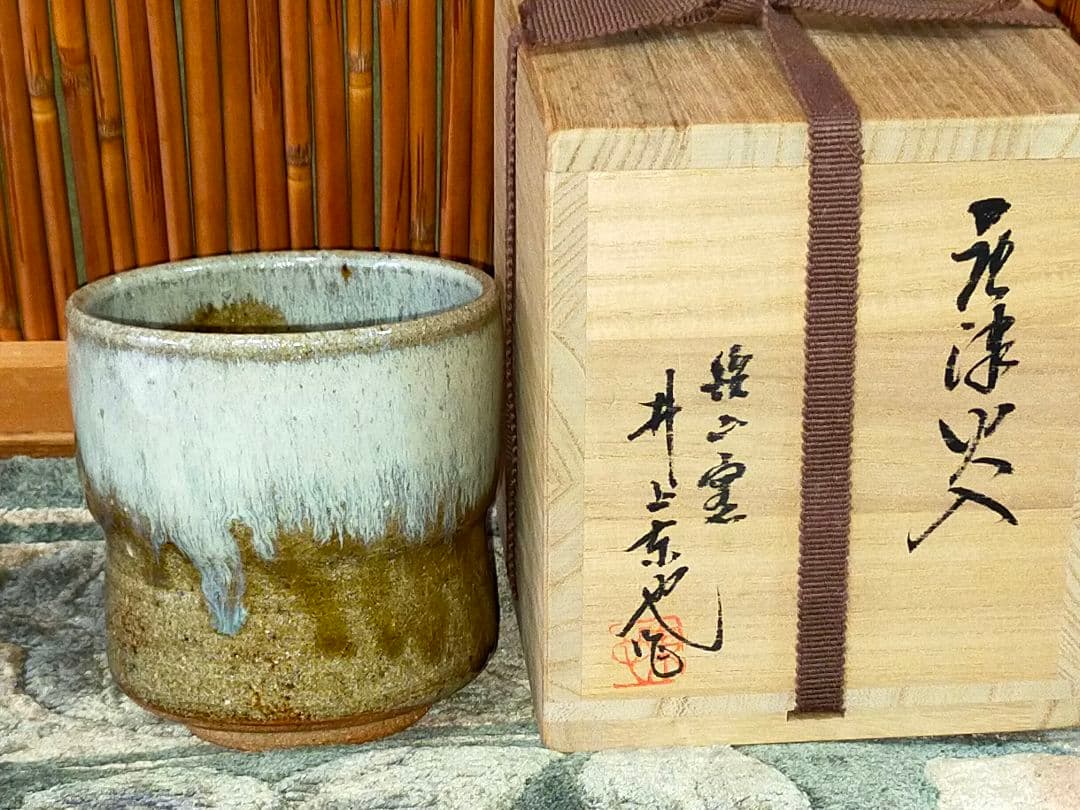 唐津火入
鏡山窯
井上東也作